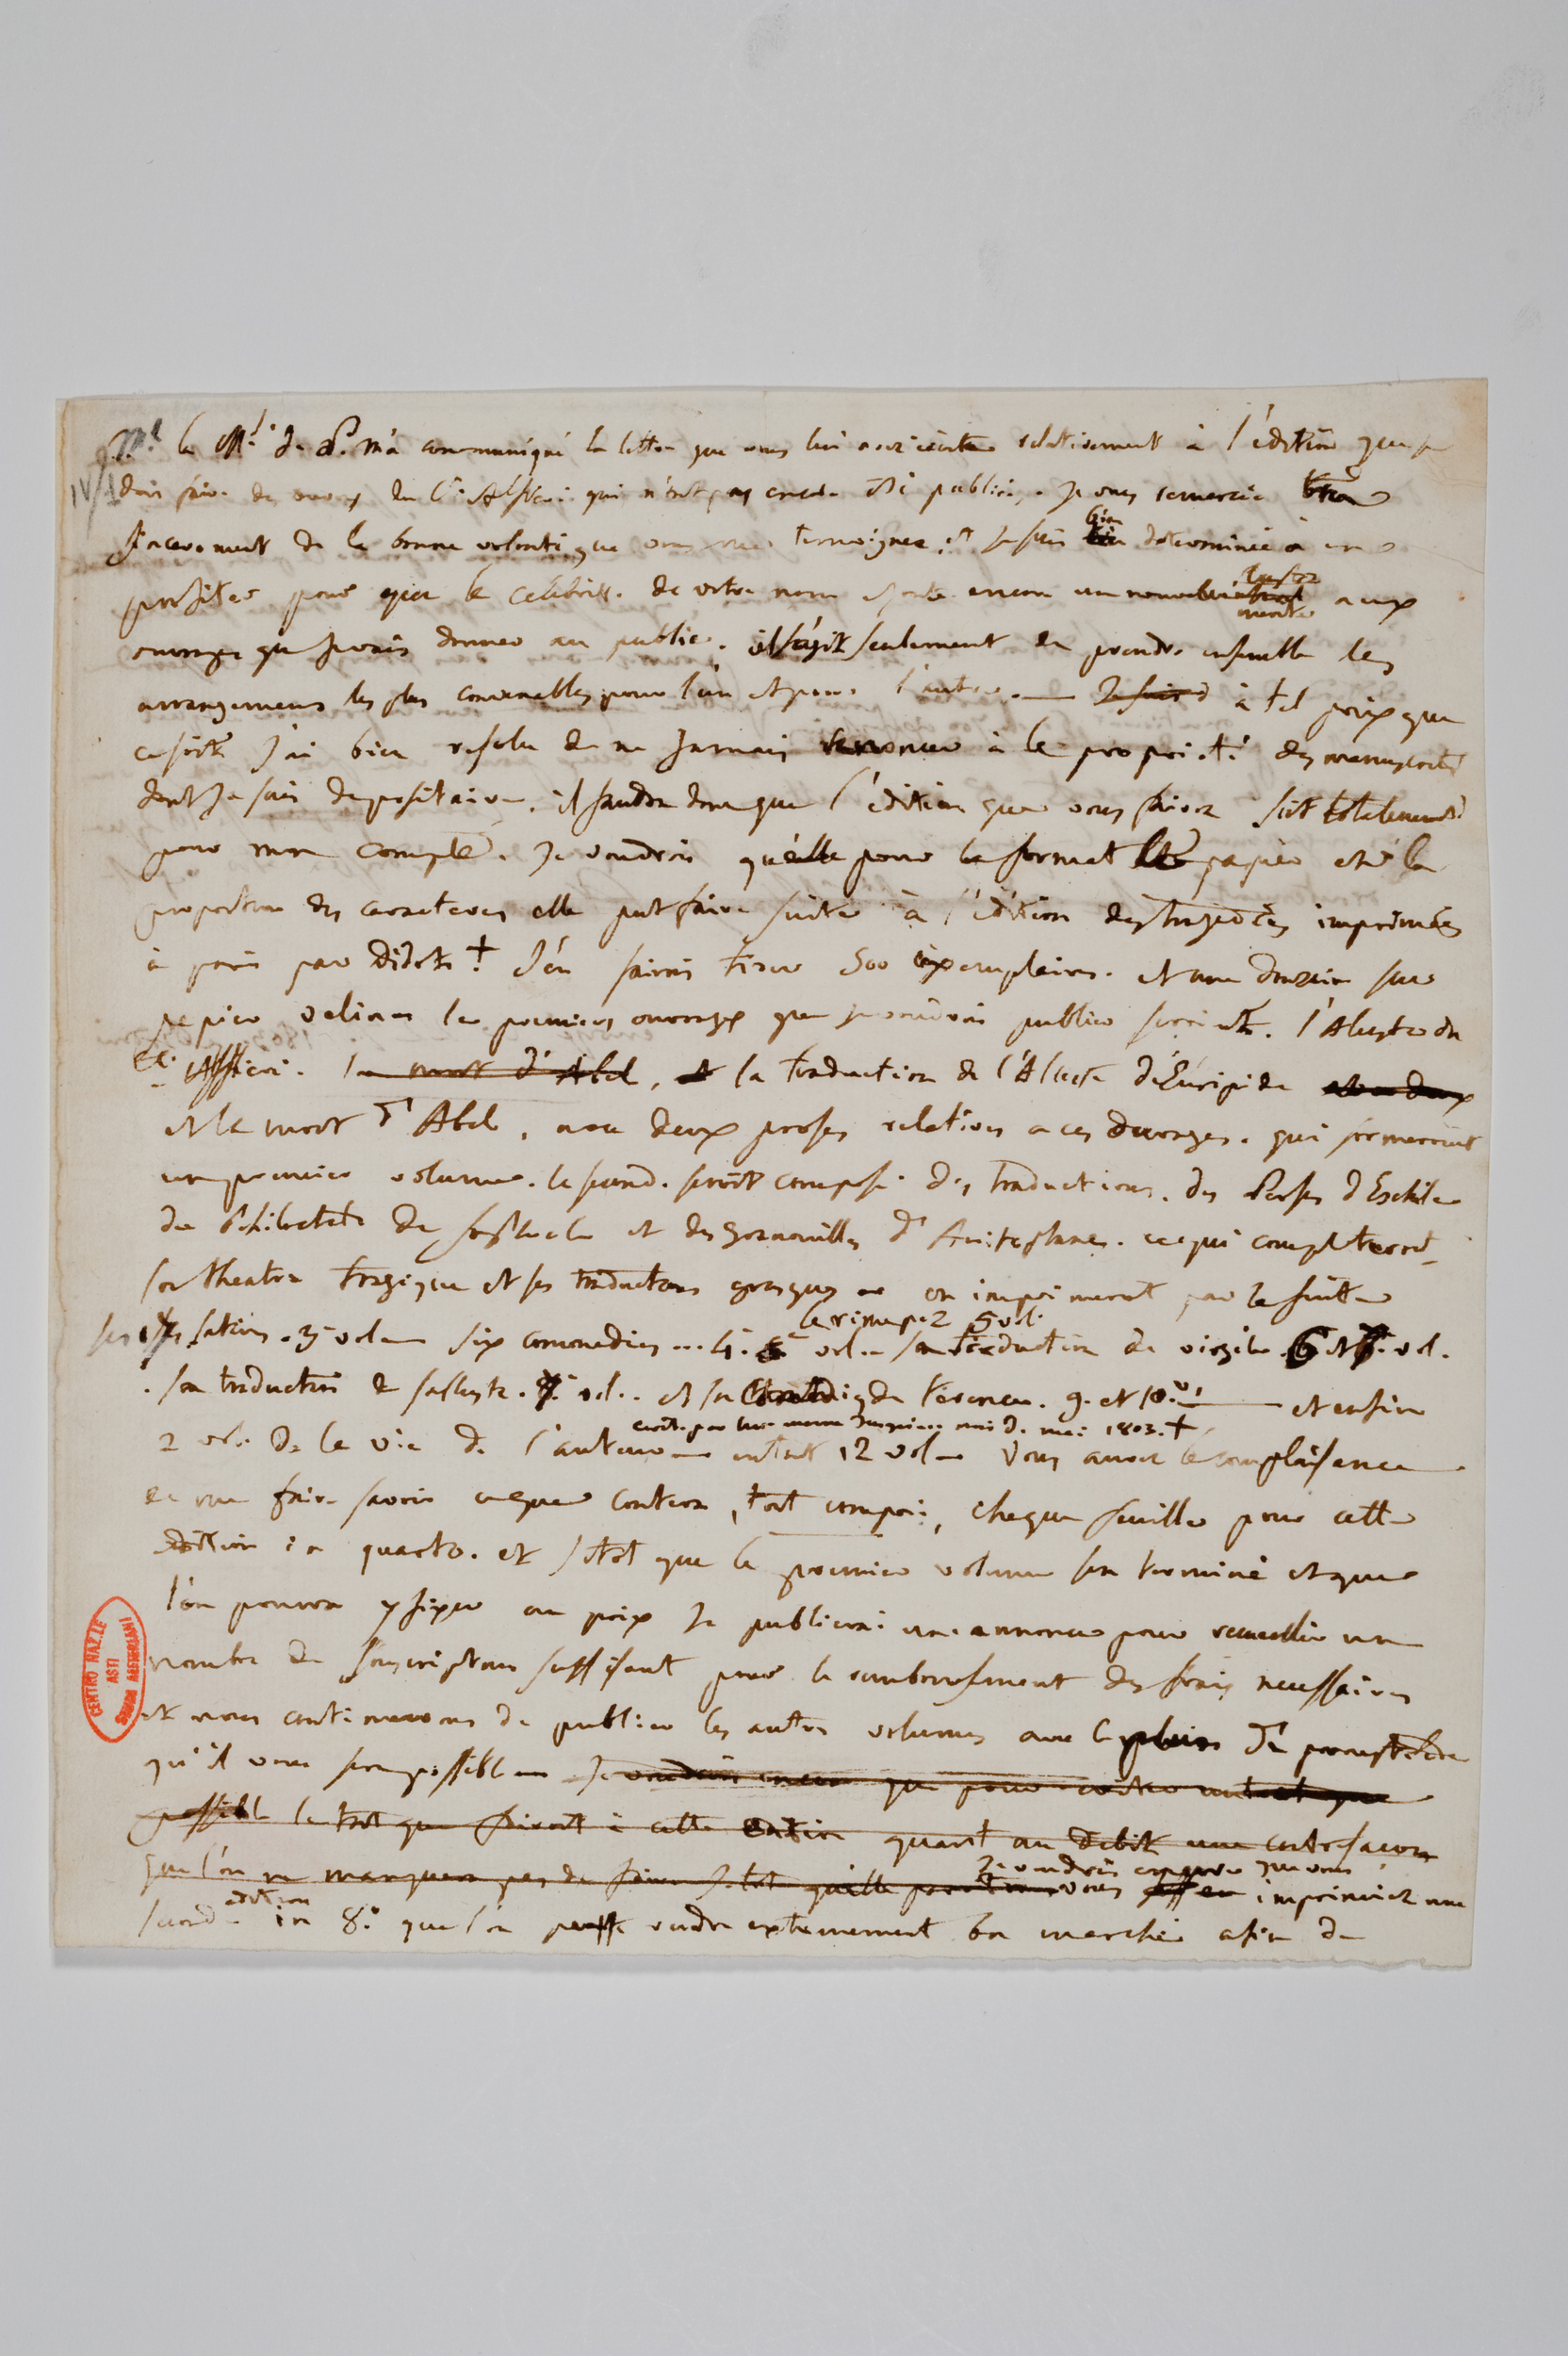 Mr. le M.l de P. m'a communiqué la lettre que vous lui avez écrite relativement à l'édition que je
IV/1
dois faire des ouvrages du C.te Alfieri qui n'ont pas encore été publiés. Je vous remercie bien
sincerement de la bonne volonté que vous me temoignez. et je suis bien determinée à en
profiter pour que la celebrité de votre nom ajoute encore un nouveau lustre aux
ouvrages que je vais donner au public. il s'agit seulement de prendre ensemble les
arrangemens les plus convenables pour l'un et pour l'autre. — Je suis à tel prix que
ce soit J'ai bien resolu de ne Jamais renoncer à la proprieté des manuscrits
dont Je suis depositaire. il faudra donc que l'edition que vous fairez soit totalement
pour mon compte. Je voudrois qu'elle pour le format le papier et la
proportion des caracteres elle put faire suite à l'édition des tragedies imprimées
à paris par Didot. + J'en fairois tirer 500 exemplaires. et une douzaine sur
papier velin les premiers ouvrages que je voudrois publier seroient. l'Alceste du
C.te Alfieri. la mort d'Abel, et la traduction de l'Alceste d'Euripide et ces deux
et la mort d'Abel, avec deux proses relatives a ces ouvrages. qui formeroient
un premier volume. le second. seroit composé des traductions. des Perses d'Eschile
du Philoctete de Sophocle et des Grenouilles d'Aristophanes. ce qui completeroit
son theatre tragique et ses traductions grecques on imprimeroit par la suite
le rime p. 2 5 vol.
ses satires. 3 vol — six commedies ... 4. vol. — sa traduction de virgile. 6 et 7. vol.
. sa traduction de salluste. 8. vol. . et sa de Terence. 9. et 10. v. — et enfin
écrite par lui meme jusqu'au mois de mai 1803. +
2 vol. De la vie de l'auteur — en tout 12 vol — Vous aurez la complaisance
de me faire savoir ce que coutera, tout compris, chaque feuille pour cette
edition in quarto. et sitot que le premier volume sera terminé et que
l'on pourra y fixer un prix Je publierai une annonce pour recueillir un
nombre de souscriptions suffisant pour le rembourssement des frais necessaires
et nous continuerons de publier les autres volumes avec le plus de promptitude
qu'il vous sera possible — Je voudrois encore que pour notre
possible le tort que fairoit à cette edition quant au debit une contrefaçon
que l'on ne manquera pas de faire sitot qu'elle Je voudrois encore que vous imprimiez une
seconde edition in 8.o que l'on puisse vendre extremement bon marché afin de
CENTRO NAZ.LE
ASTI
STUDI ALFIERIANI